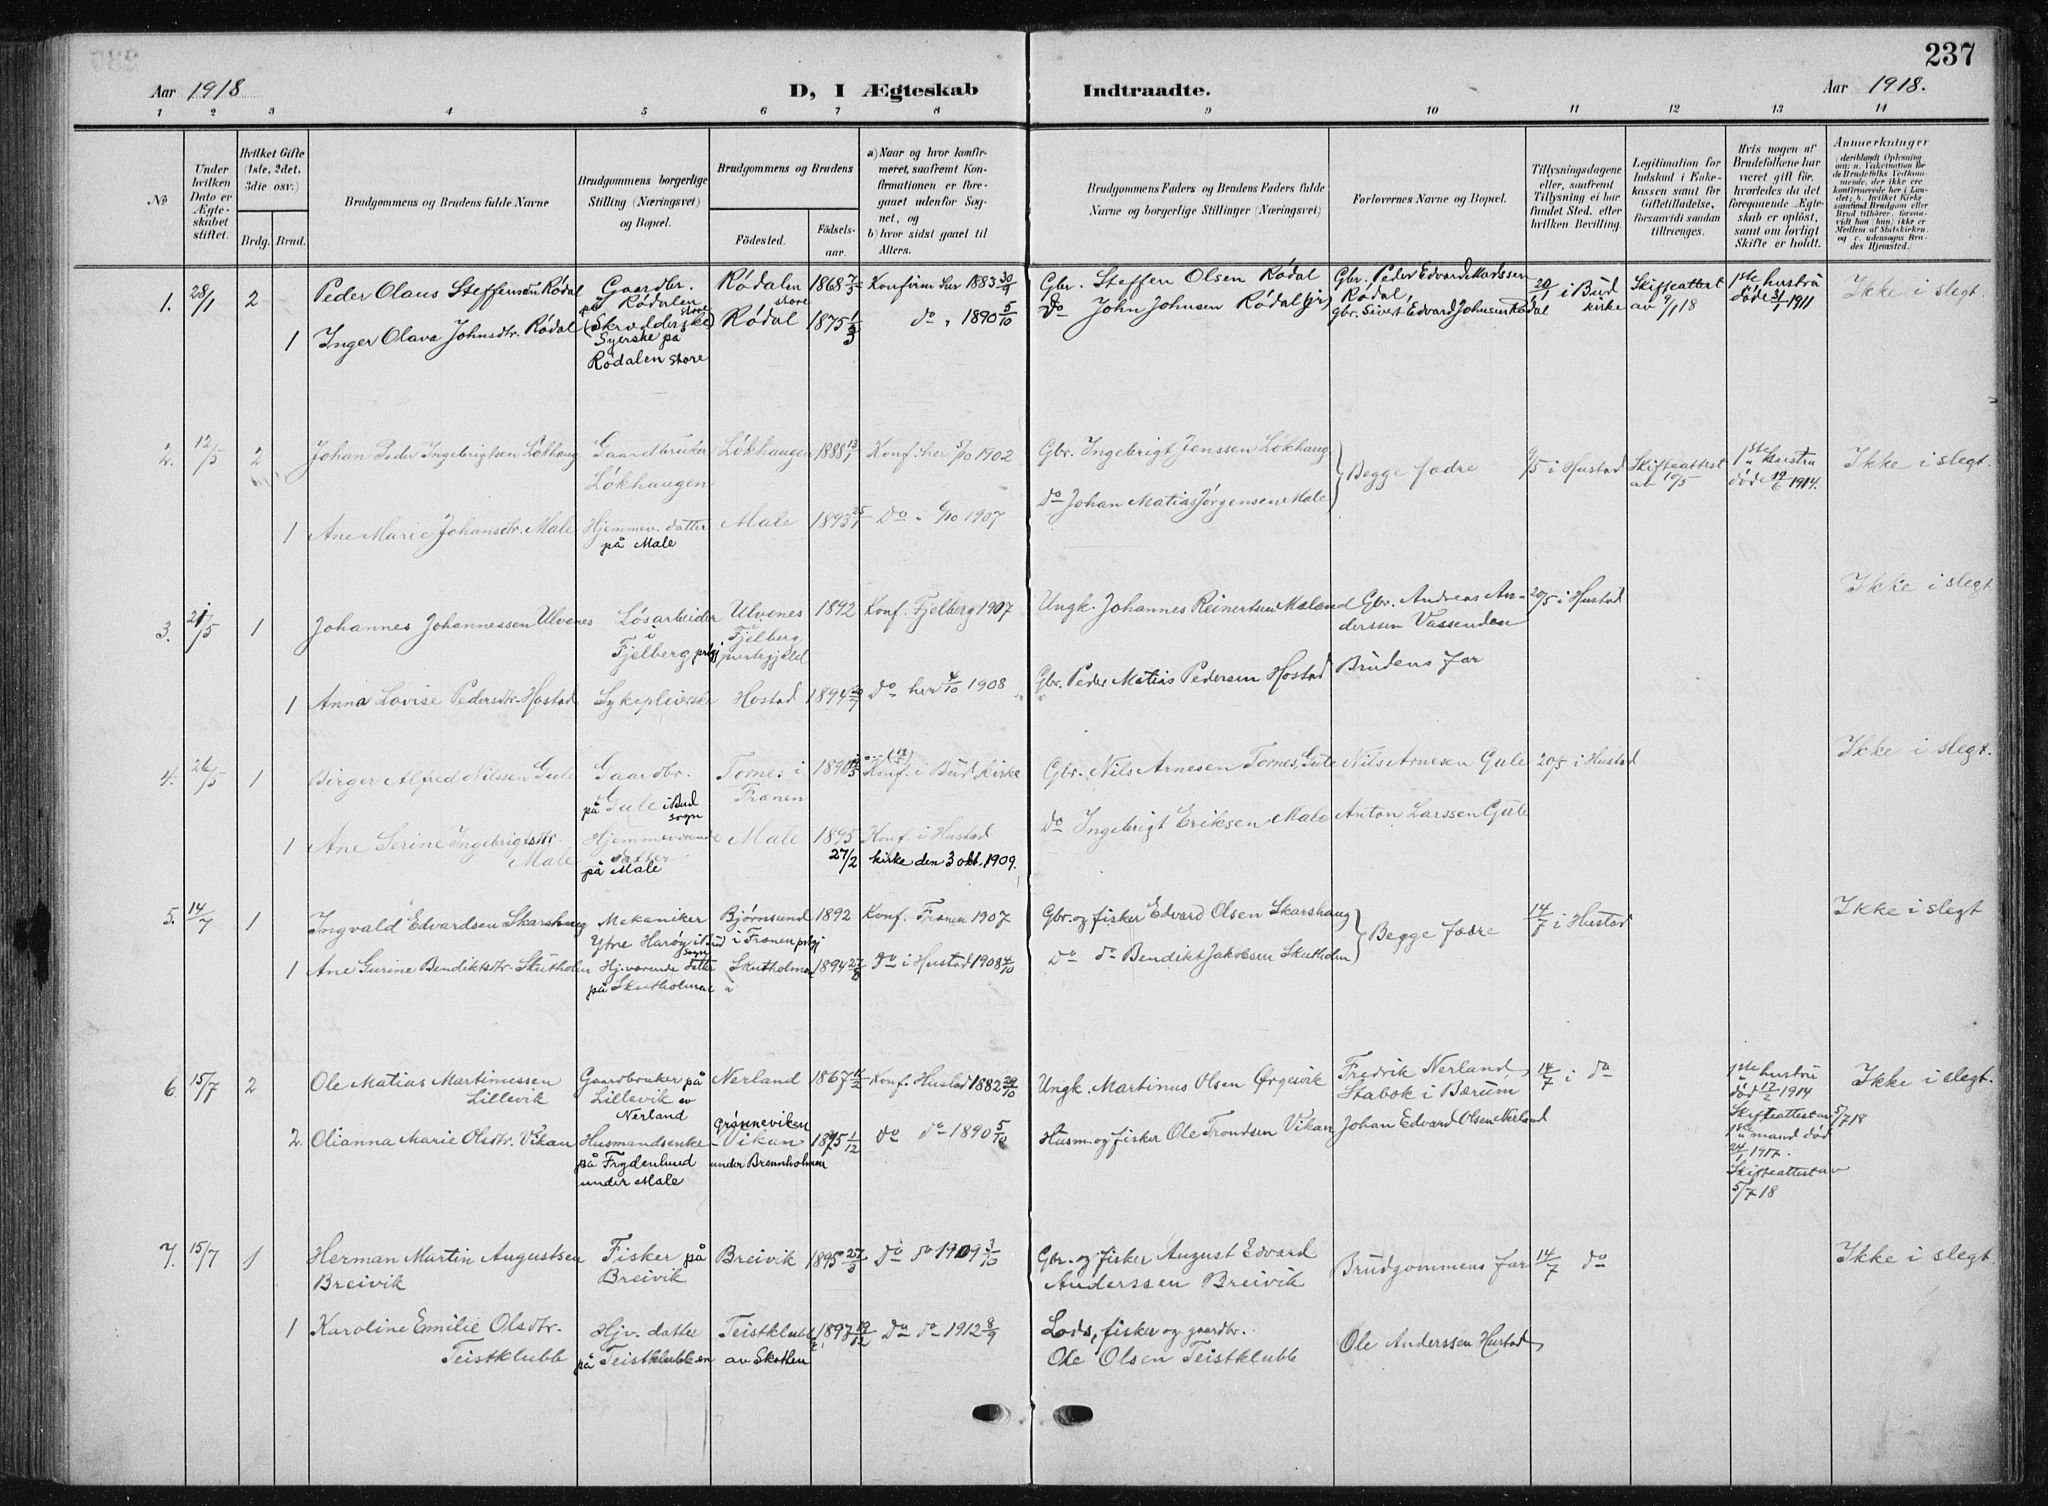 237
Aar 1918
D, I Ægteskab
Indtraadte.
Aar 1918.
1 2 3 4 5 6 7 8 9 10 11 12 13 14
No
Under hvilken Dato er Ægteskabet stiftet.
Hvilket Gifte (1ste, 2det, 3die osv.)
Brdg. Brud.
Brudgommens og Brudens fulde Navne
Brudgommens borgerlige Stilling (Næringsvei) og Bopæl.
Brudgommens og Brudens
Fødested.
Fødselsaar.
a) Naar og hvor konfirmeret, saafremt Konfirmationen er foregaaet udenfor Sognet, og
b) hvor sidst gaaet til Alters.
Brudgommens Faders og Brudens Faders fulde Navne og borgerlige Stillinger (Næringsvei)
Forlovernes Navne og Bopæl.
Tillysningsdagene eller, saafremt Tillysning ei har fundet Sted, efter hvilken Bevilling.
Legitimation for Indskud i Enkekassen samt for Giftetilladelse, forsaavidt saadan tiltrænges.
Hvis nogen af Brudefolkene har været gift før, hvorledes da det foregaaende Ægteskab er opløst, samt om lovligt Skifte er holdt.
Anmerkninger
(deriblandt Oplysning om: a. Vakcination for de Brudefolks Vedkommende, der ikke ere konfirmerede her i Landet; b. hvilket Kirkesamfund Brudgom eller Brud tilhører, forsaavidt han (hun) ikke er Medlem af Statskirken, og c. udensogns Brudes Hjemsted.)
1. 28/1 2 Peder Olaus Steffensen Rødal
Gaardbr. på Rødalen store
Rødalen store
1868 7/5
Konfirm. her 1883 30/9
Gbr. Steffen Olsen Rødal
Gbr. Peder Edvard Rødal,
20/1 i Bud kirke
Skifteattest av 9/1 18
1ste hustru døde 31/1 1911
Ikke i slegt.
1 Inger Olava Johnsdtr. Rødal
(Skrædderske) Syerske på Rødalen store
Rødal
1875
do 1890 5/10
do John Johnsen Rødal (jr)
Gbr. Sivert Edvard Johnsen Rødal
2. 12/5 2 Johan Peder Ingebrigtsen Løkhaug
Gaardbruker Løkhaugen
Løkhaugen
1888 13/1
Konf. her 5/10 1902
Gbr. Ingebrigt Jenssen Løkhaug
Begge fædre
9/5 i Hustad
Skifteattest av 10/5
1ste hustru døde 19/6 1914.
Ikke i slegt.
1 Ane Marie Johansdtr. Male
Hjemmev. datter på Male
Male
1893 25/1
Do i 6/10 1907
Do Johan Matias Jørgensen Male
3. 21/5 1 Johannes Johannessen Ulvenes
Løsarbeider i Fjelberg prgj
Ulvenes i Fjelberg prestegjeld
1892
Konf. Fjelberg 1907
Ungk. Johannes Reinertsen Maland
Gbr. Andreas Anderssen Vassenden
20/5 i Hustad
Ikke i slegt
1 Anna Lovise Pedersdtr. Hostad
Sykepleierske
Hostad
1894 20/7
Do her 4/10 1908
Gbr. Peder Matias Pedersen Hostad
Brudens far
4. 26/5 1 Birger Alfred Nilssen Gule
Gaardbr. på Gule i Bud sogn
Tornes i Frænen
1891
Konf. i Bud kirke
Gbr. Nils Arnesen Tornes, Gule
Nils Arnesen Gule
20/5 i Hustad
Ikke i slegt.
1 Ane Serine Ingebrigtsdtr. Male
Hjemmeværende datter på Male
Male
1895 27/2
Konf. i Hustad kirke den 3 okt. 1909.
do Ingebrigt Eriksen Male
Anton Larssen Gule
5. 14/7 1 Ingvald Edvardsen Skarshaug
Mekaniker Ytre Harøy i Bud sogn
Bjørnsund i Frænen prgj
1892
Konf. Frænen 1907
Gbr. og fisker Edvard Olsen Skarshaug
Begge fædre
14/7 i Hustad
Ikke i slegt
1 Ane Gurine Bendiktsdtr. Skutholm
Hj. værende datter på Skutholmen
Skutholmen
1894 27/8
do i Hustad 1908 4/10
Do do Bendikt Jakobsen Skutholm
6. 15/7 2 Ole Matias Martinussen Lillevik
Gaardbruker på Lillevik av Nerland
Nerland
1867 11/2
Konf. Hustad 1882 29/10
Ungk. Martinus Olsen Ørgevik
Fredrik Nerland Stabæk i Bærum
14/7 i do
1ste hustru død 17/2 1914 Skifteattest av 5/7 18
Ikke i slegt.
2. Olianna Marie Olsdtr. Vikan
Husmandsenke på Frydenlund under Male
Grønneviken - Vikan under Brennholmen
1875 1/12
do do 1890 5/10
Husm. og fisker Ole Trondsen Vikan
Johan Edvard Olsen Nerland
1ste mand død 24/1 1917. Skifteattest av 5/7 18
7. 15/7 1 Herman Martin Augustsen Breivik
Fisker på Breivik
Breivik
1895 27/3
do do 1909 3/10
Gbr. og fisker August Edvard Anderssen Breivik
Brudgommens far
14/7 do
Ikke i slegt.
1 Karoline Emilie Olsdtr. Teistklubb
Hjv. datter på Teistklubben
Teistklubb av Skothen
1897 19/12
Do do 1912 8/9
Lods, fisker og gaardbr. Ole Olsen Teistklubb
Ole Anderssen Hustad